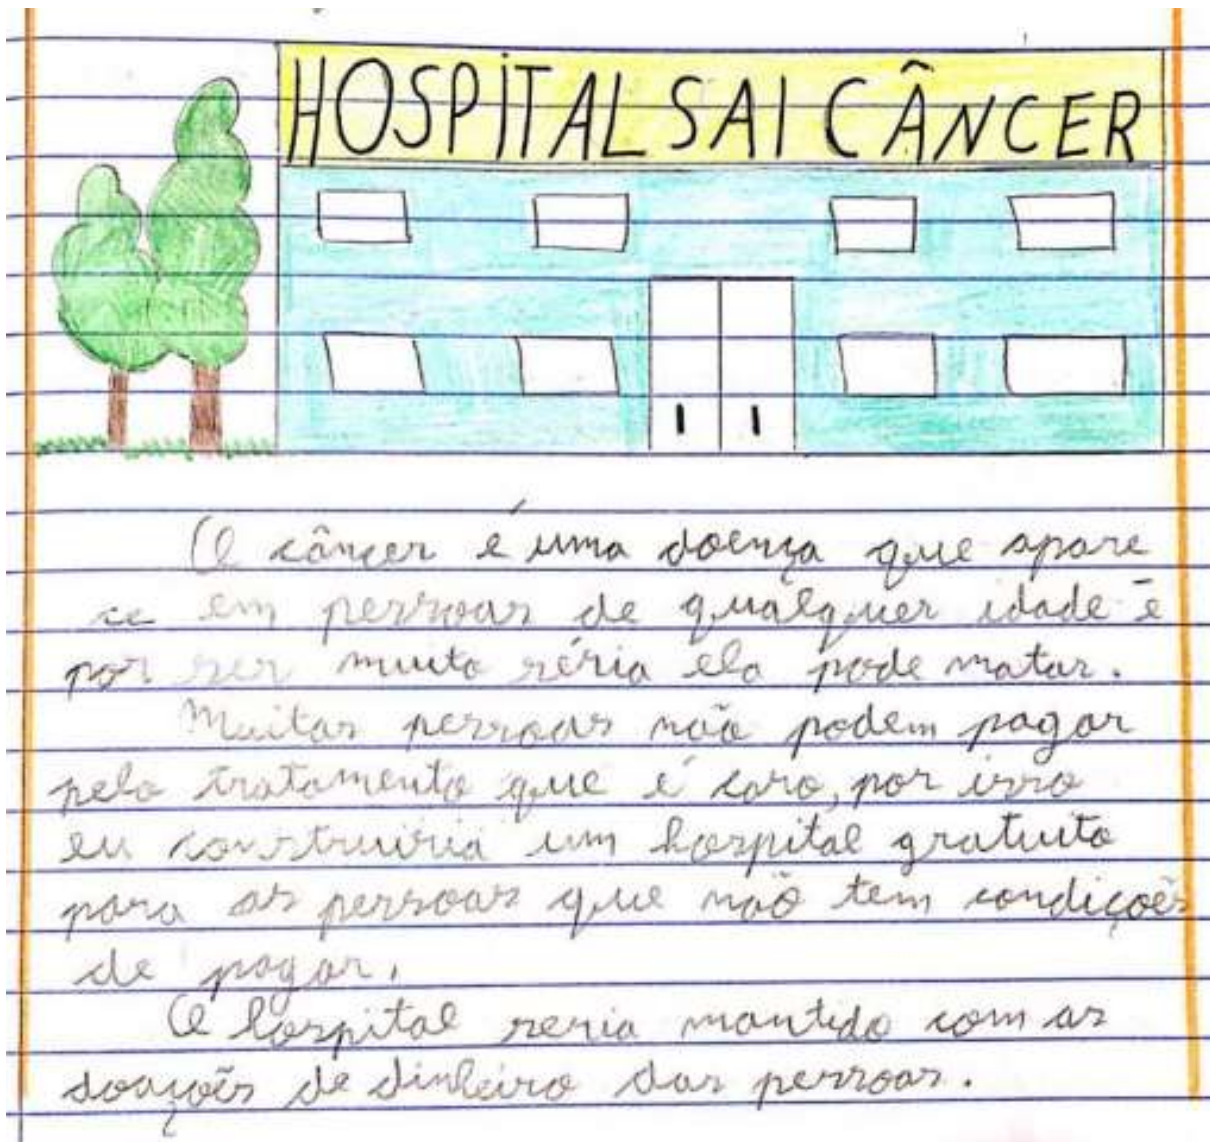 HOSPITAL SAI CÂNCER
O câncer é uma doença que apare
ce em pessoas de qualquer idade é
por ser muito séria ela pode matar.
Muitas pessoas não podem pagar
pelo tratamento que é caro, por isso
eu construiria um hospital gratuito
para as pessoas que não tem condições
de pagar.
O hospital seria mantido com as
doações de dinheiro das pessoas.